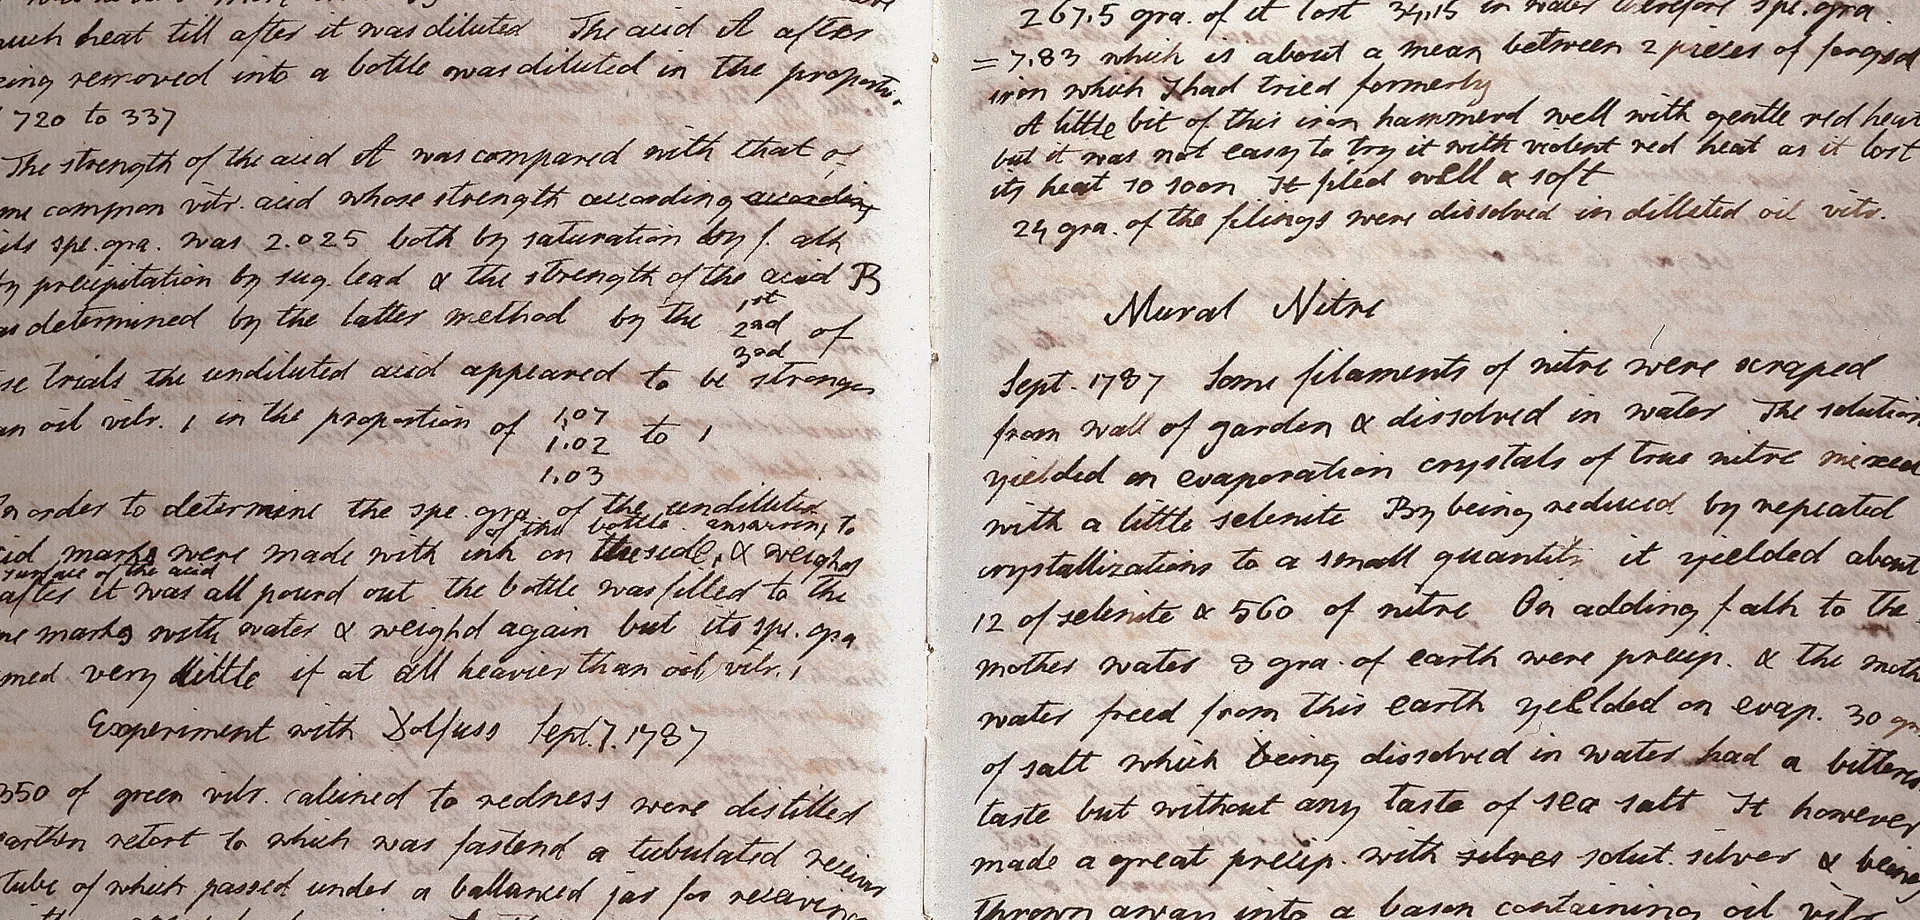 much heat till after it was diluted The acid A after
being removed into a bottle was diluted in the proporti
720 to 337
The strength of the acid A was compared with that of
common vitr. acid whose strength according according
its spe. gra. was 2.025 both by saturation by f. alk
by precipitation by sug. lead & the strength of the acid B
as determined by the latter method by the 1st 2nd 3rd of
se trials the undiluted acid appeared to be stronger
an oil vitr. 1 in the proportion of 1,07 1.02 1.03 to 1
In order to determine the spe. gra. of the undiluted
of the bottle answering to
cid marks were made with ink on the side, & weighd
surface of the acid
after it was all pourd out the bottle was filled to the
me marks with water & weighd again but its spe. gra
med very little if at all heavier than oil vitr. 1
Experiment with Dolfuss Sept. 7. 1787
350 of green vitr. calcined to redness were distilled
earthen retort to which was fastend a tubulated receiver
tube of which passed under a ballanced jar for receiving
267,5 gra. of it lost 34,15 in water therefore spe. gra.
= 7.83 which is about a mean between 2 pieces of forged
iron which I had tried formerly
A little bit of this iron hammerd well with gentle red heat
but it was not easy to try it with violent red heat as it lost
its heat so soon It filed well & soft
24 gra. of the filings were dissolved in dilleted oil vitr.
Mural Nitre
Sept. 1787 Some filaments of nitre were scraped
from wall of garden & dissolved in water The solution
yielded on evaporation crystals of true nitre mixed
with a little selenite By being reduced by repeated
crystallizations to a small quantity it yielded about
12 of selenite & 560 of nitre On adding f. alk to the
mother water 8 gra. of earth were precip. & the moth
water freed from this earth yeilded on evap. 30 gr
of salt which being dissolved in water had a bitterish
taste but without any taste of sea salt It however
made a great precip. with silver solut. silver & being
thrown away into a bason containing oil vitr.